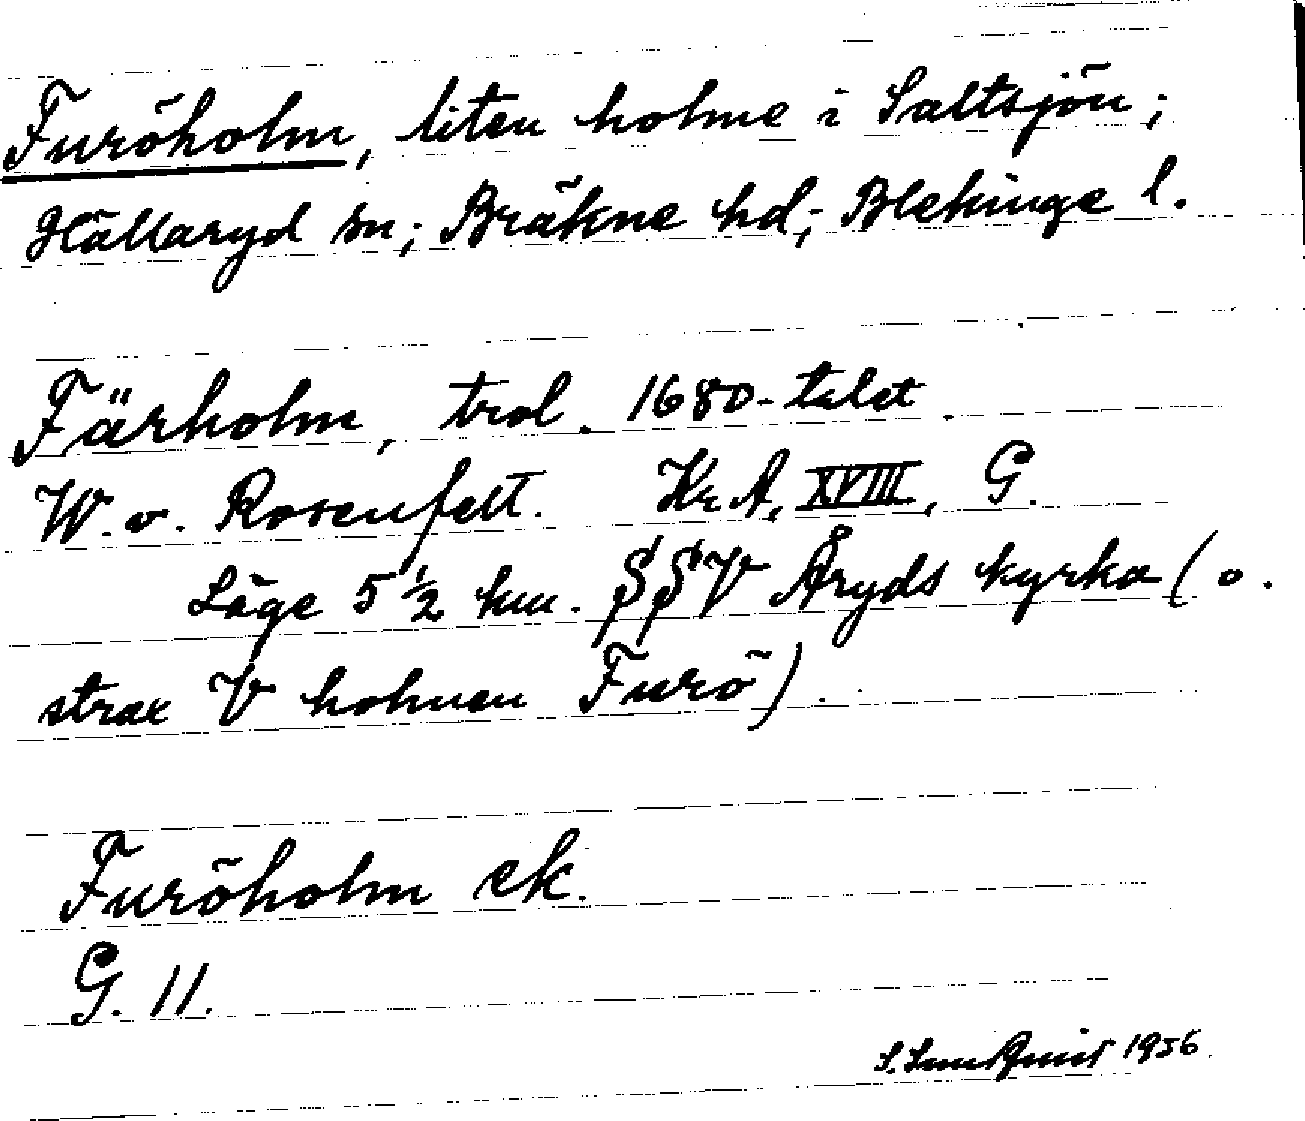 Furöholm, liten holme i Saltsjön;
Hällaryd sn; Bräkne hd; Blekinge l.
Färholm, trol. 1680-talet.
W. v. Rosenfelt. Kr. A, XVIII, G.
Läge 5 ½ km. SSV Åryds kyrka (o.
strax V holmen Furö).
Furöholm ek.
G. 11.
1956